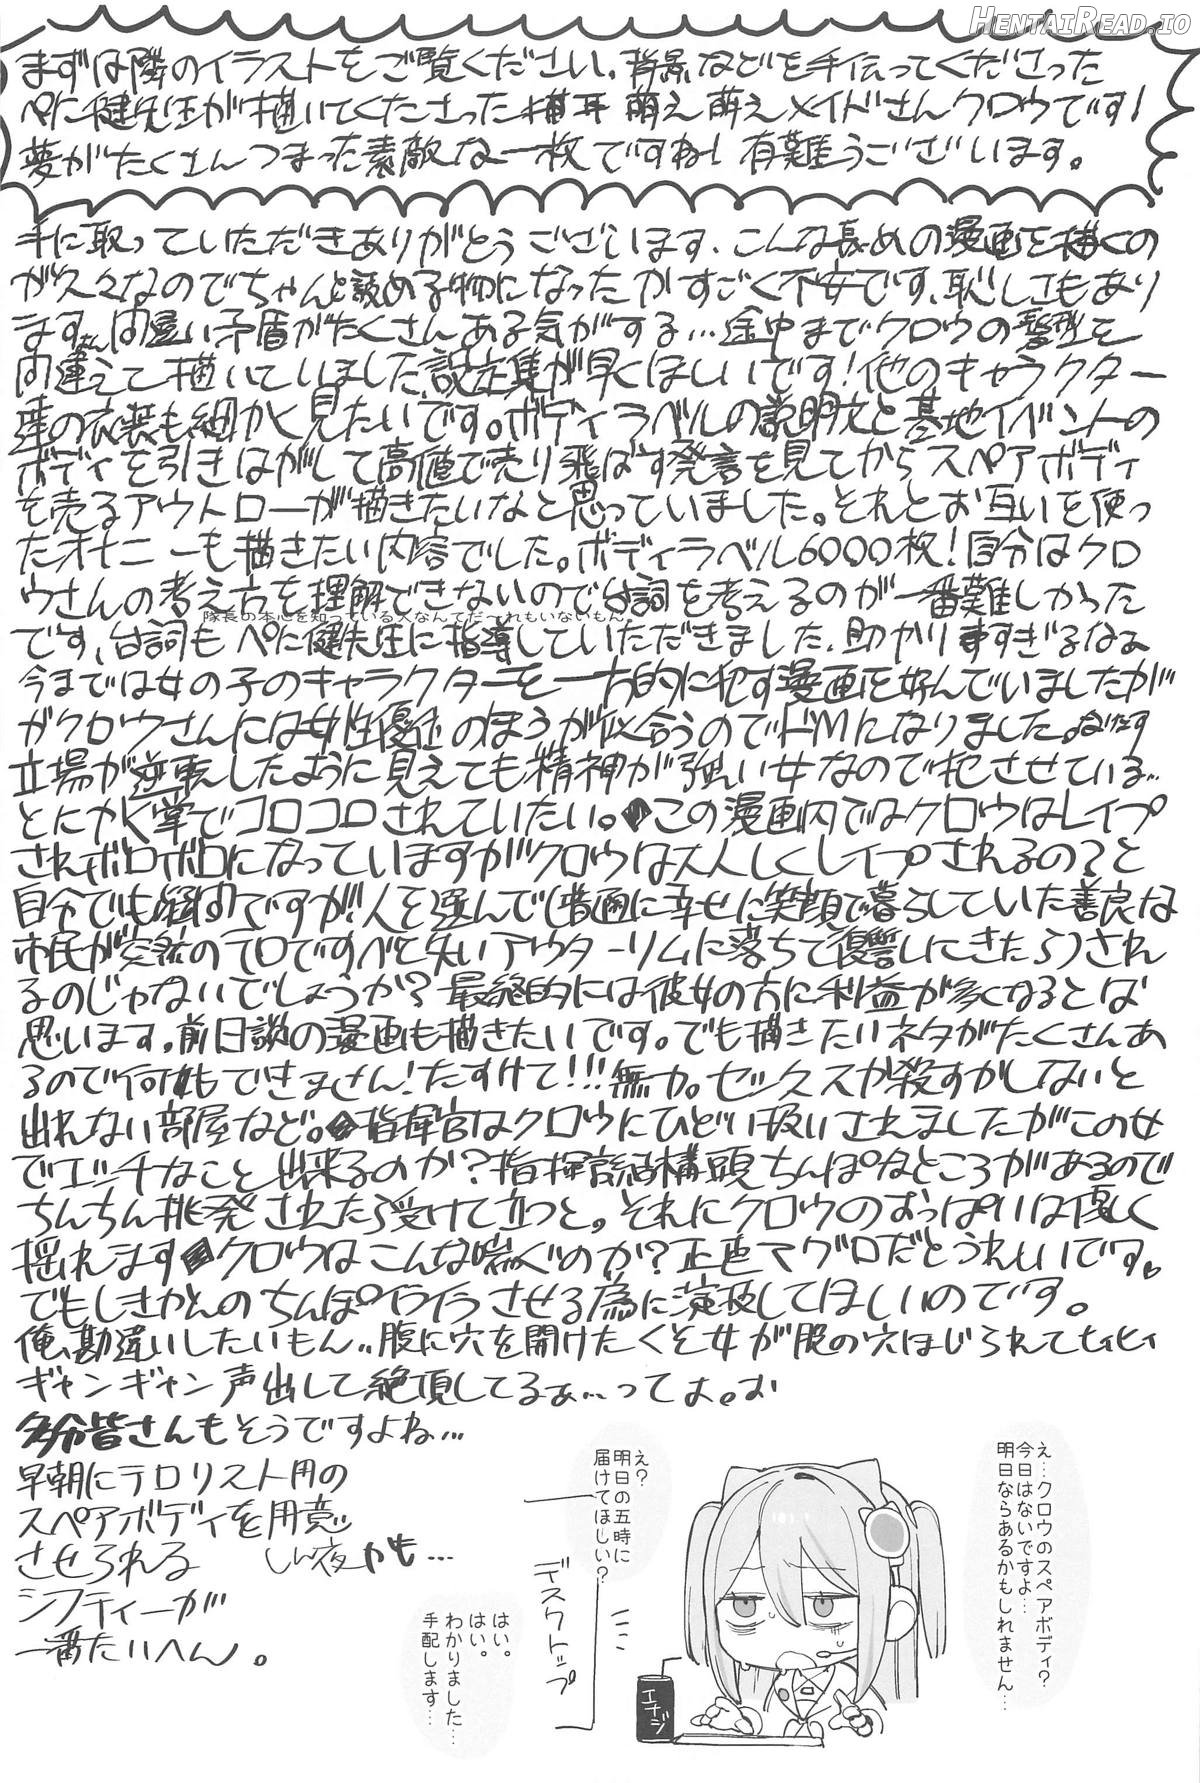 HENTAIREAD.IO
まずは隣のイラストをご覧ください。背景などを手伝ってくださった
ぺに健先生が描いてくださった猫耳萌え萌えメイドさんクロウです!
夢がたくさんつまった素敵な一枚ですね!有難うございます。
手に取っていただきありがとうございます、こんな長めの漫画を描くの
が久々なのでちゃんと読める物になったかすごく不安です、恥しさもあり
ます 間違い矛盾がたくさんある気がする…途中までクロウの髪型を
間違えて描いていました設定集が早くほしいです!他のキャラクター
達の衣装も細かく見たいです。ボディラベルの説明文と基地イベントの
ボディを引きはがして高値で売り飛ばす発言を見てからスペアボディ
を売るアウトローが描きたいなと思っていました。それとお互いを使っ
たオナニーも描きたい内容でした。ボディラベル6000枚!自分はクロ
ウさんの考え方を理解できないので台詞を考えるのが一番難しかった
隊長の本心を知っている人なんてだーれもいないもん。
です、台詞もぺに健先生に指導していただきました、助かりますすぎるなぁ
今までは女の子のキャラクターを一方的に犯す漫画を好んでいましたが
がクロウさんには女性優位のほうが似合うのでドMになりました。
立場が逆転したように見えても精神が強い女なので犯させている…
とにかく掌でコロコロされていたい。この漫画内ではクロウはレイプ
されボロボロになっていますがクロウは大人しくレイプされるの?と
自分でも疑問ですが!人を選んで(普通に幸せに笑顔で暮らしていた善良な
市民が突然のテロですべて失いアウターリムに落ちて復讐しにきたら)され
るのじゃないでしょうか?最終的には彼女の方に利益が多くなるとは
思います。前日談の漫画も描きたいです。でも描きたいネタがたくさんあ
るので何もできません!たすけて!!!無力。セックスか殺すかしないと
出れない部屋など。指揮官はクロウにひどい扱いされましたがこの女
でエッチなこと出来るのか?指揮官結構頭ちんぽなところがあるので
ちんちん挑発されたら受けて立つと。それにクロウのおっぱいは優しく
揺れます クロウはこんな喘ぐのか?正直マグロだとうれしいです。
でもしきかんのちんぽイライラさせる為に演技してほしいのです。
俺、勘違いしたいもん..腹に穴を開けたくそ女が股の穴ほじられてヒィヒィ
ギャンギャン声出して絶頂してるぁ…ってょ。お
多分皆さんもそうですよね…
早朝にテロリスト用の
スペアボディを用意
させられる しん夜かも…
シフティーが
一番たいへん。
え…クロウのスペアボディ?
今日はないですよ…
明日ならあるかもしれません…
え?
明日の五時に
届けてほしい?
デスクトップ
はい。
はい。
わかりました…
手配します…
エナジ